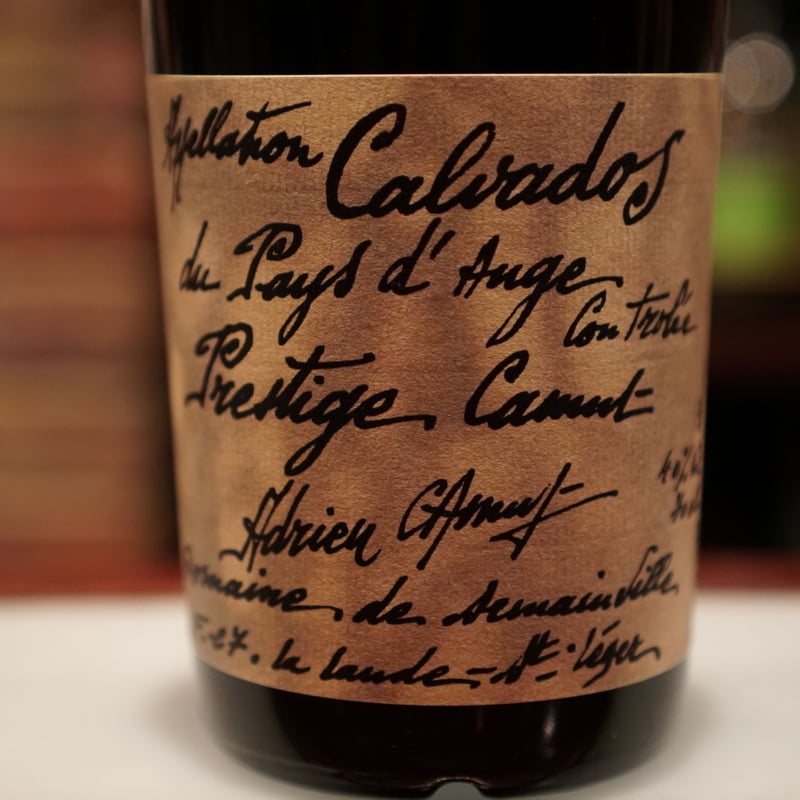 Appellation Calvados
du Pays d'Auge
Controlée
Prestige Camut
40%
Adrien CAmut
Domaine de Semainville
La Lande - St. Léger